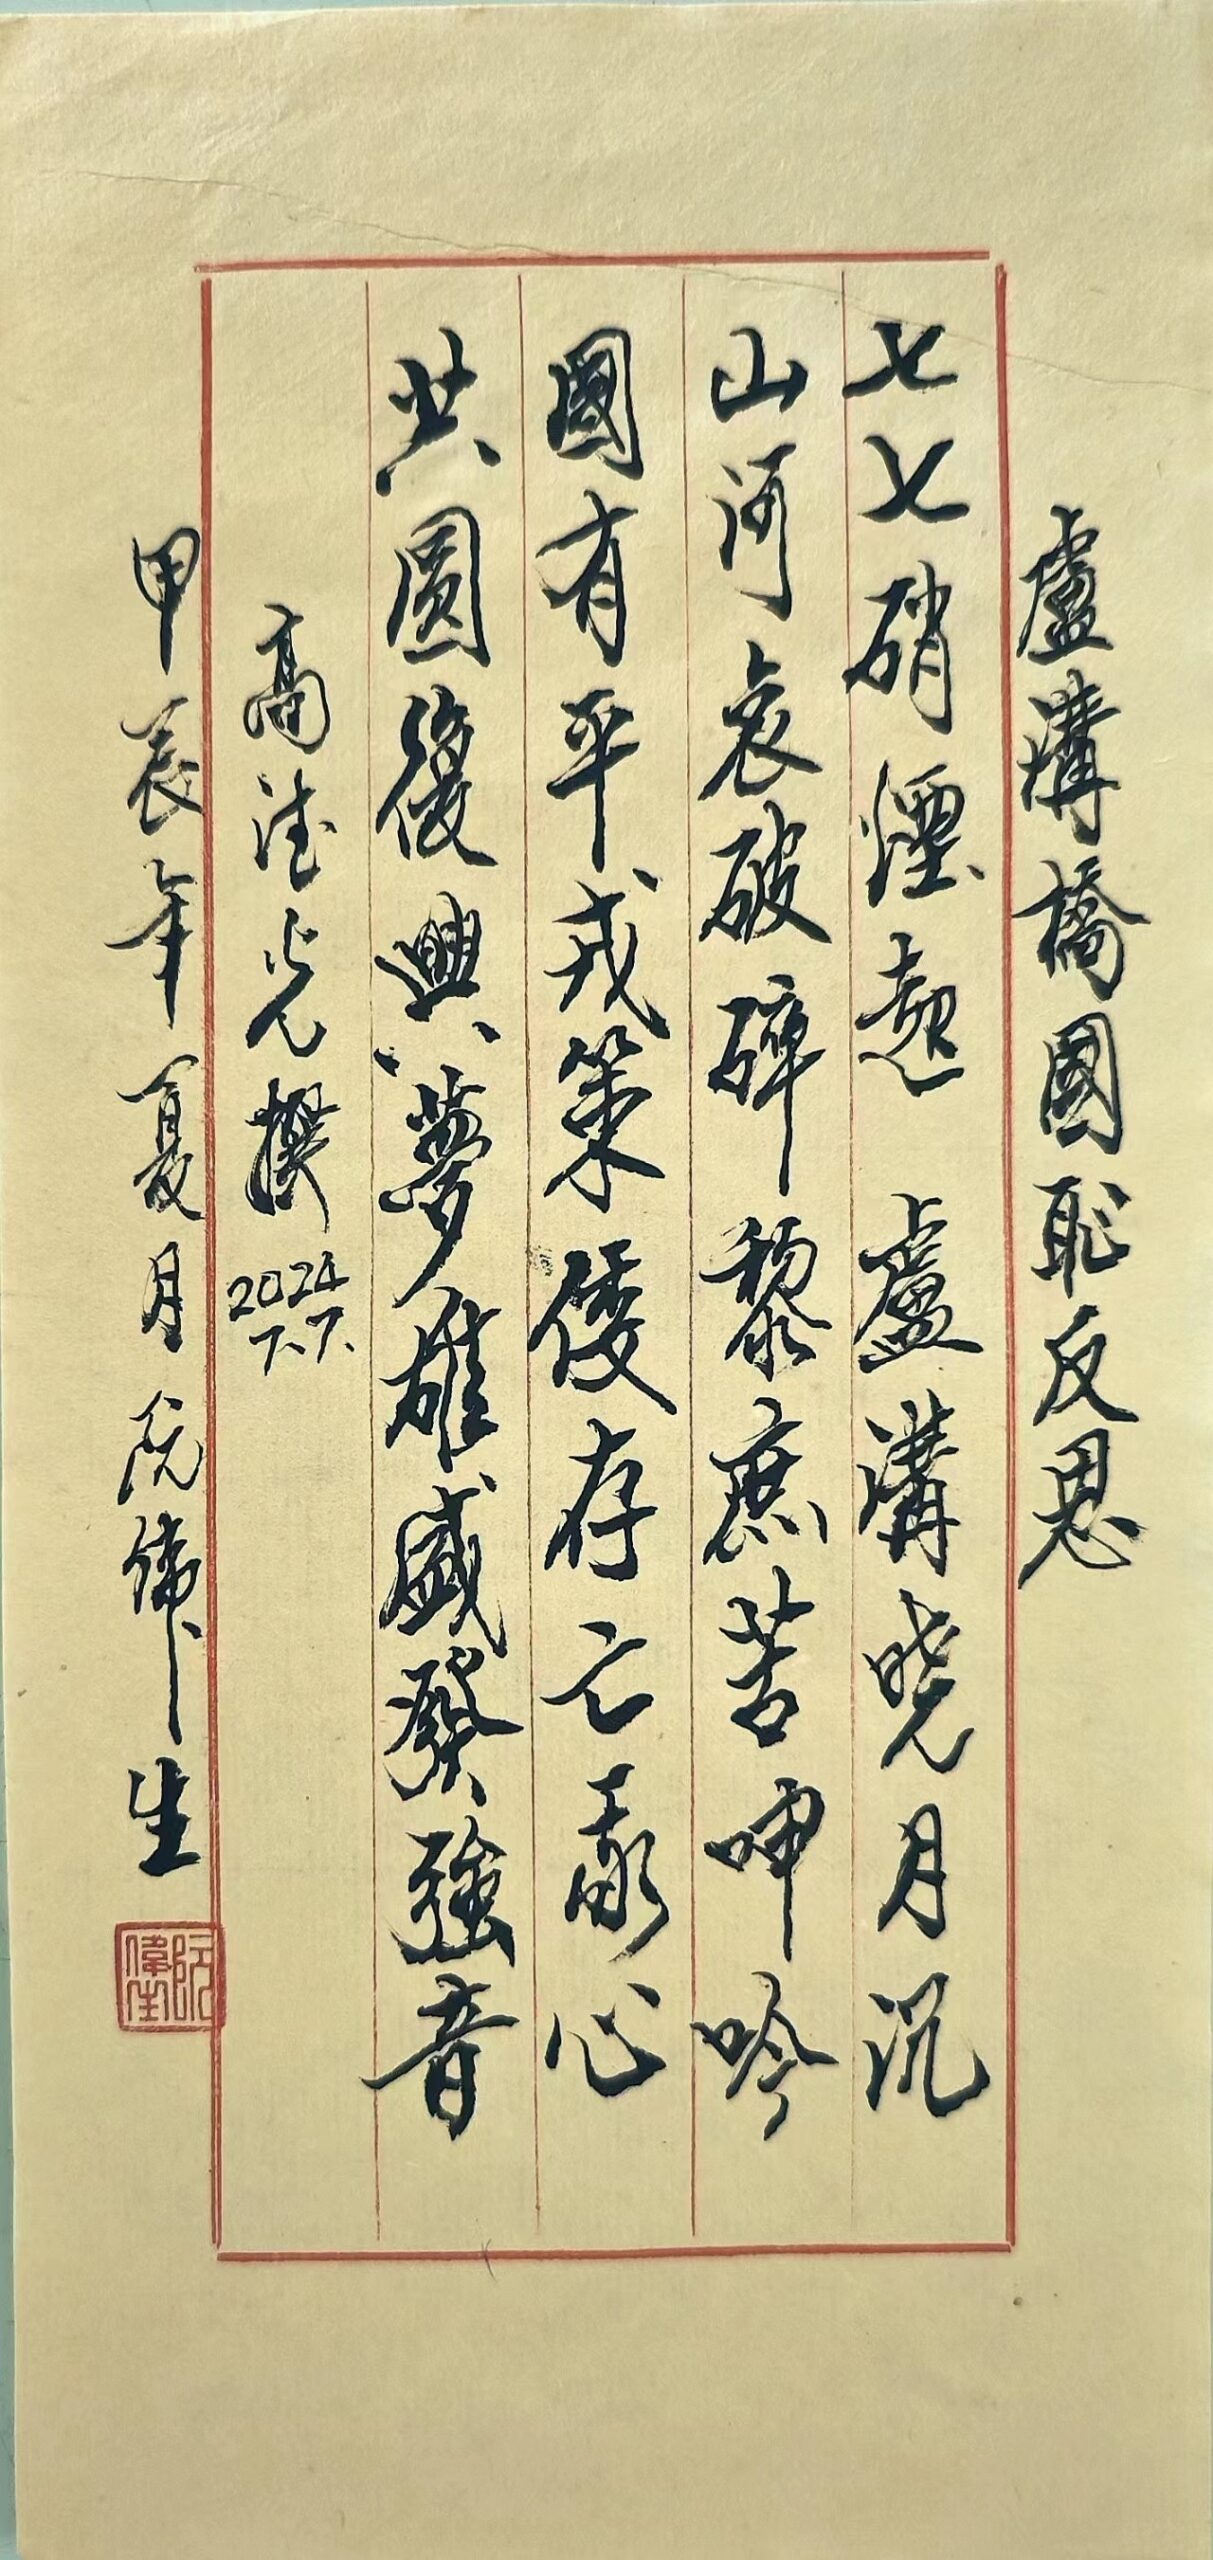 盧溝橋國恥反思
七七硝煙起盧溝曉月沉
山河哀破碎黎庶苦呻吟
國有平戎策倭存亡我心
共圓復興夢雄威發強音
高德光撰
2024
7.7.
甲辰年夏月阮偉生
阮偉生